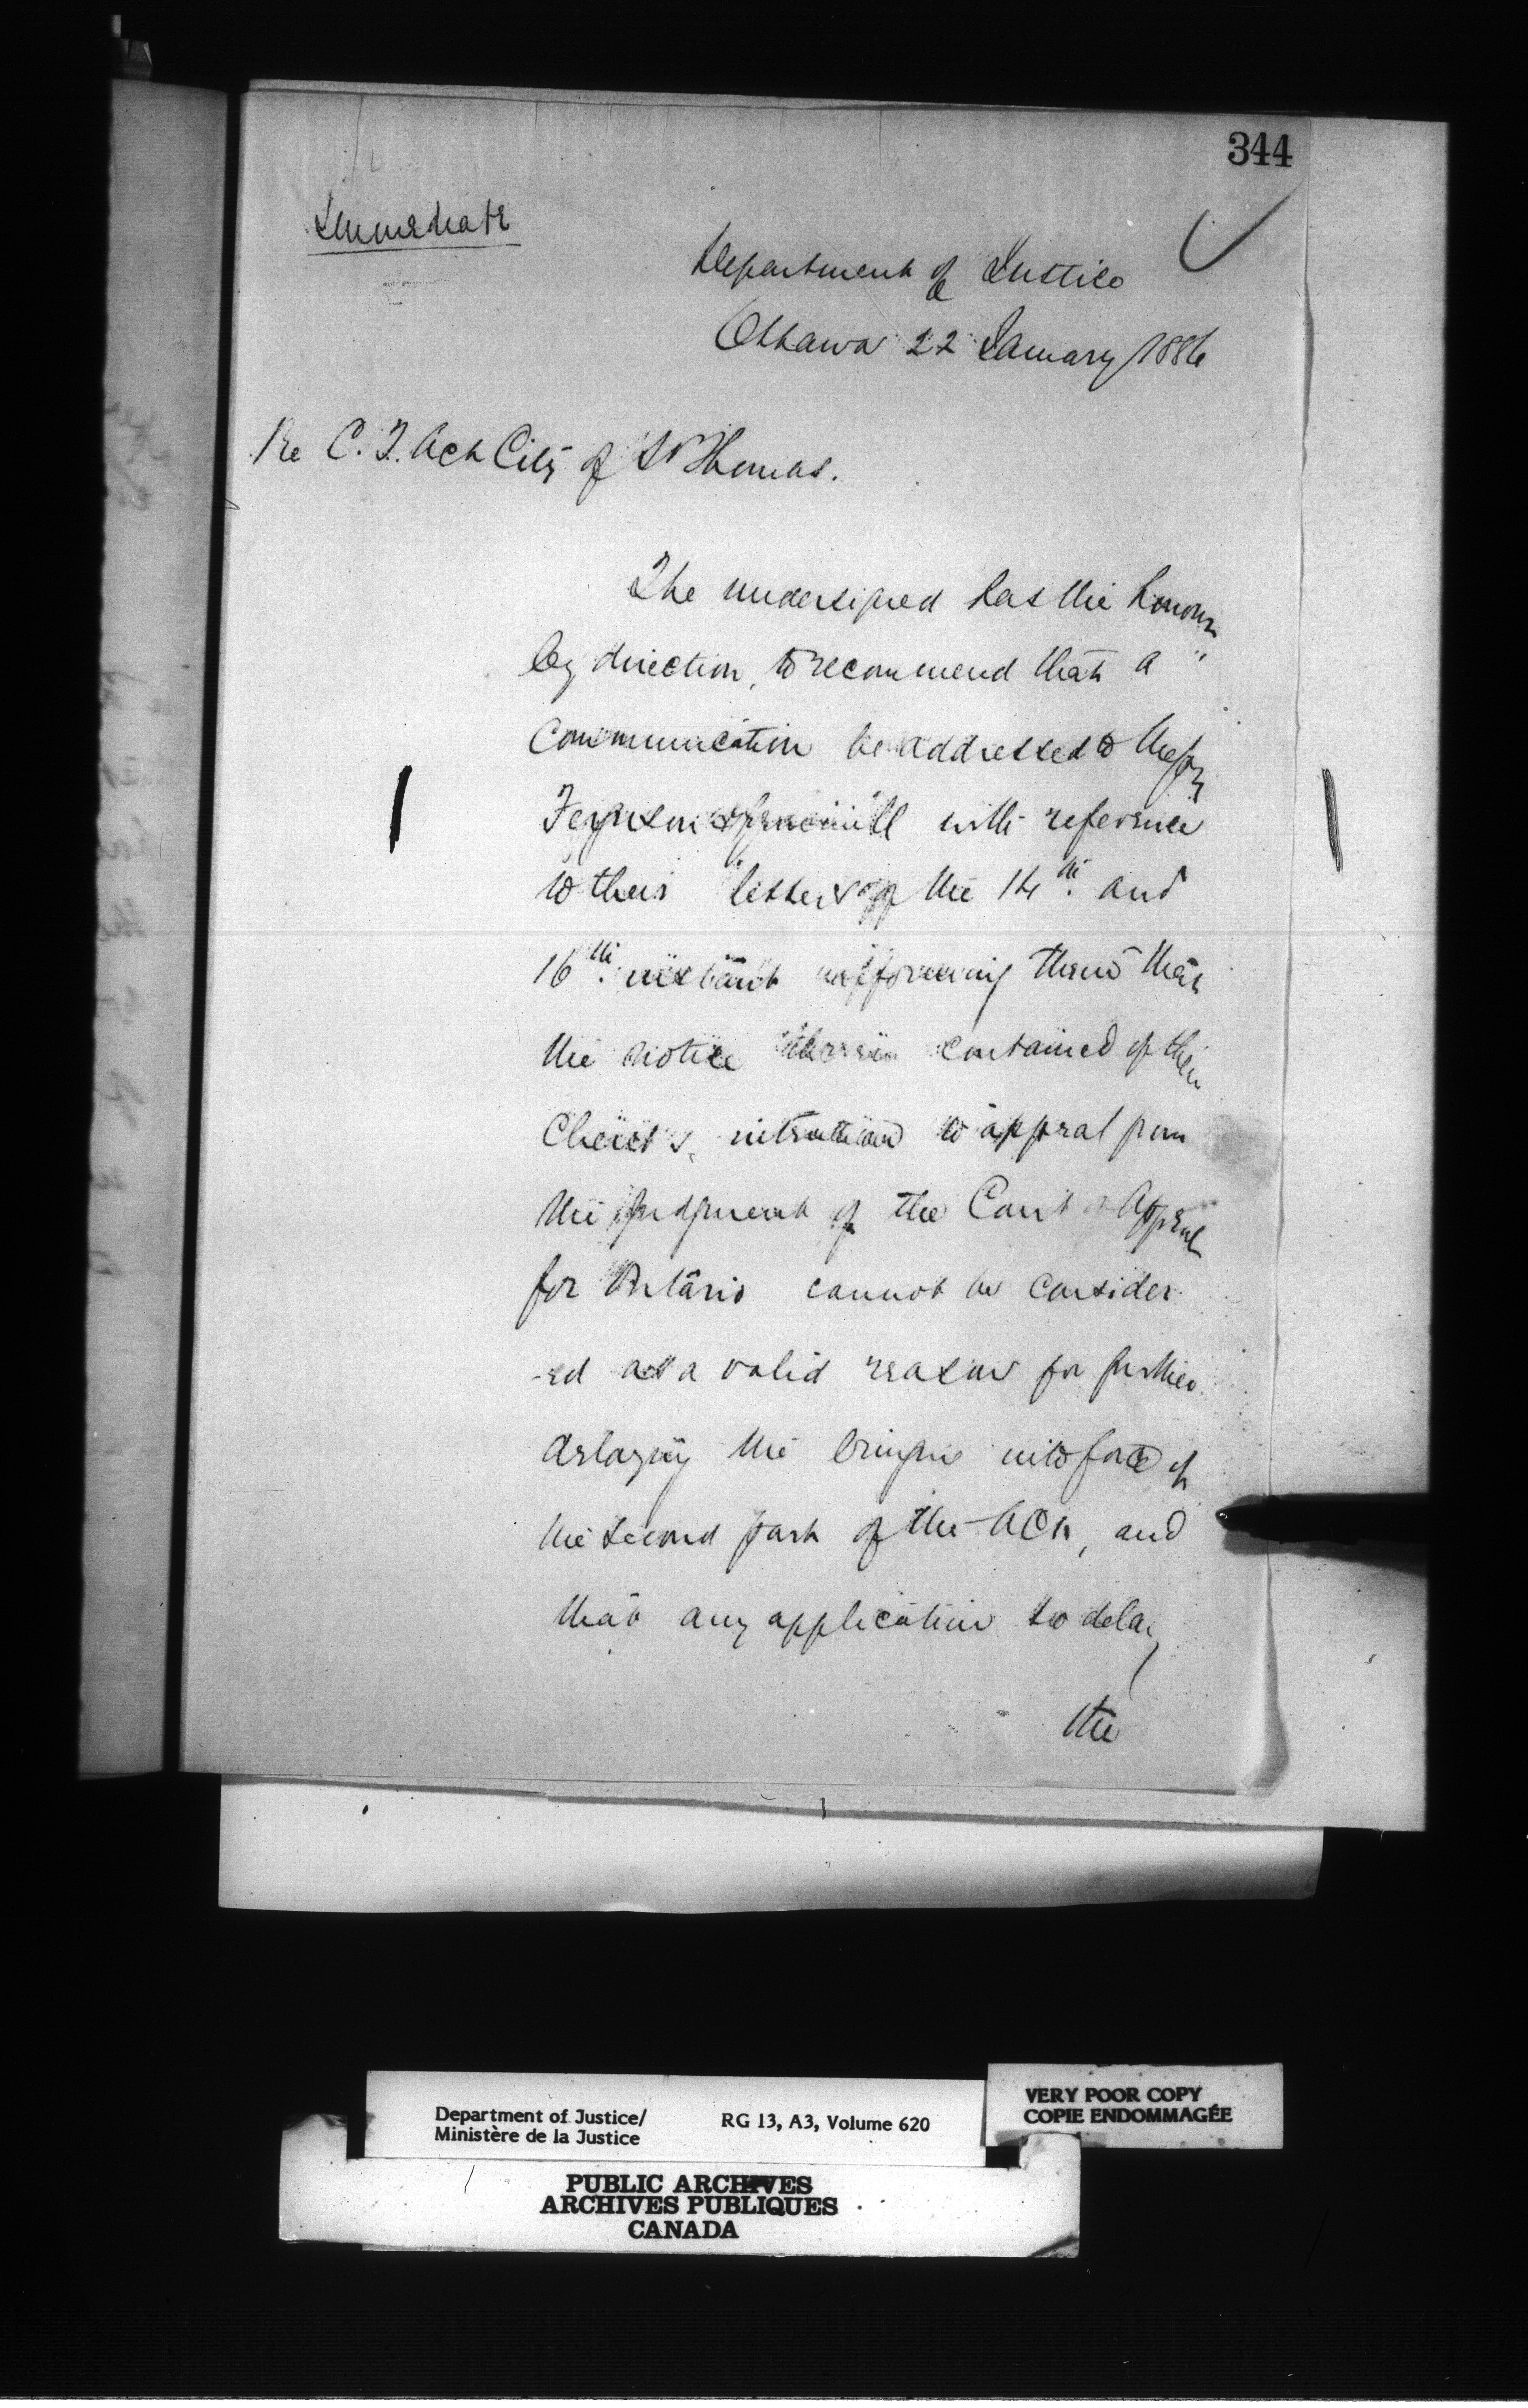 344
Immediate
Department of Justice
Ottawa 22 January 1886
Re C. T. Act City of St Thomas.
The undersigned has the honour
by direction, to recommend that a
communication be addressed to Messrs
Ferguson with reference
to their letters of the 14th. and
16th. instant informing them that
the notice therein contained of their
Client's intention to appeal from
the judgment of the Court of Appeal
for Ontario cannot be consider
-ed as a valid reason for further
delaying the bringing into force of
the second part of the Act, and
that any application to delay
the
Department of Justice/ RG 13, A3, Volume 620
Ministère de la Justice
VERY POOR COPY
COPIE ENDOMMAGÉE
PUBLIC ARCHIVES
ARCHIVES PUBLIQUES
CANADA